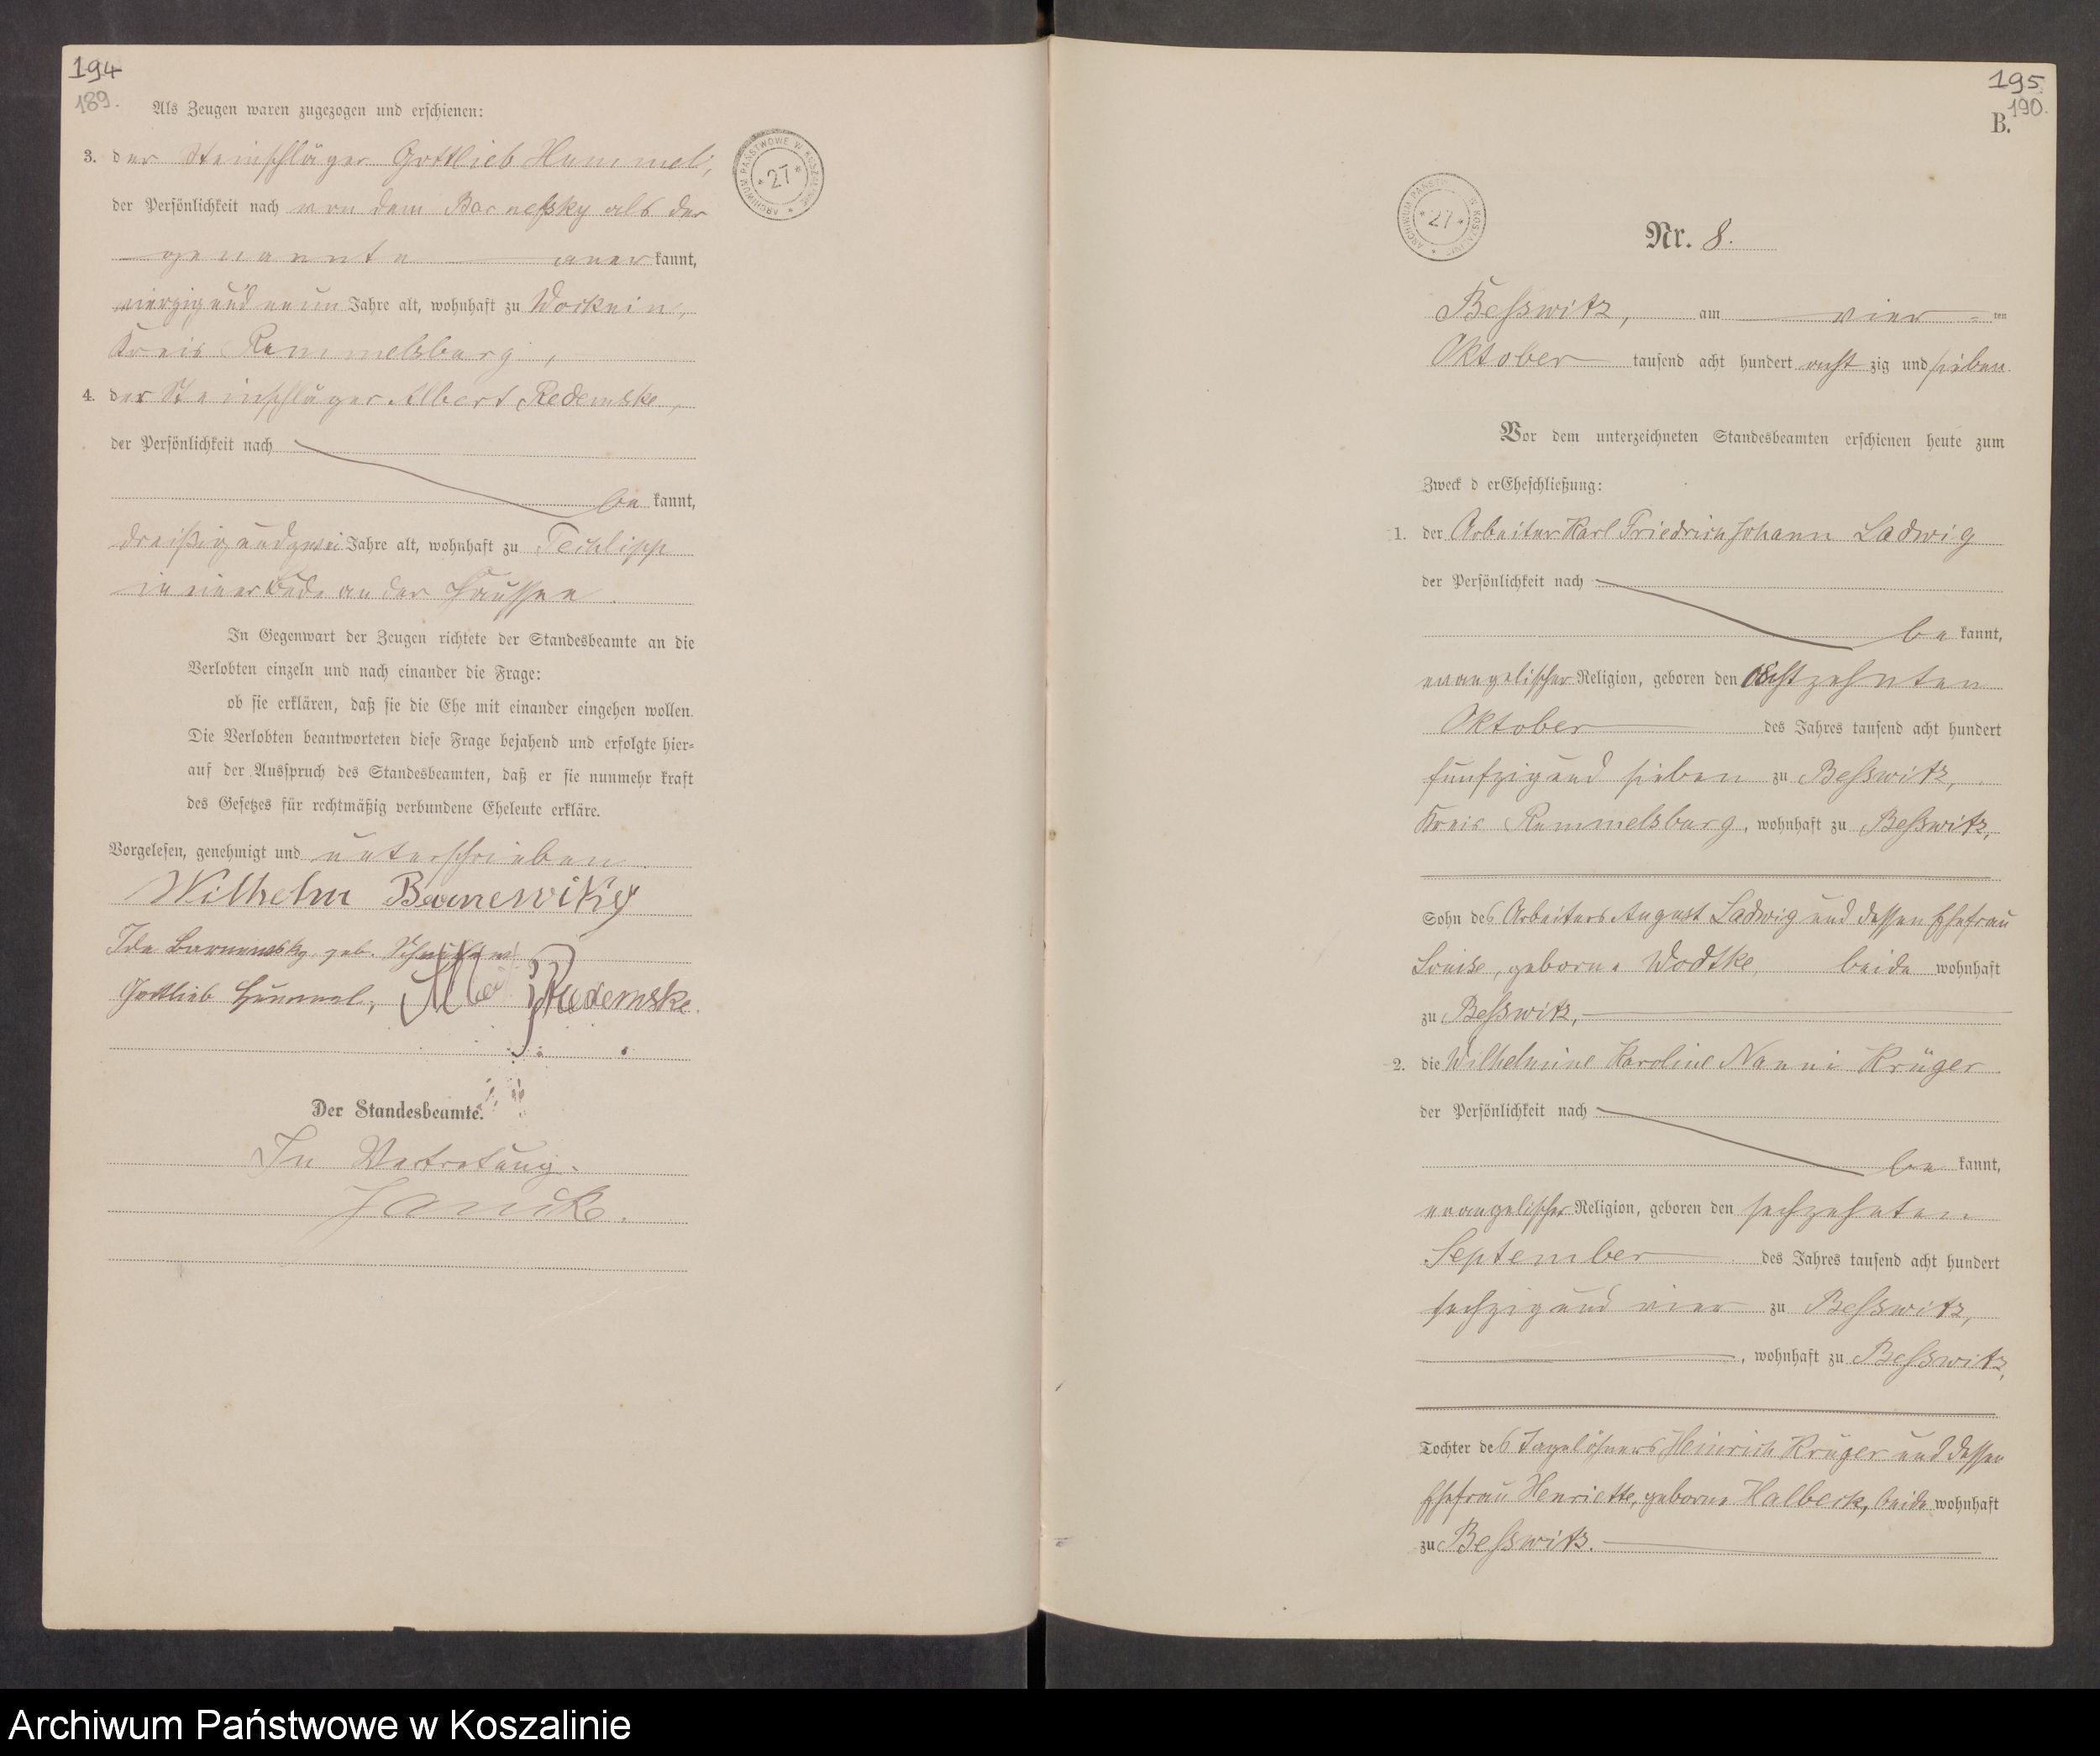 194
189.
Als Zeugen waren zugezogen und erschienen:
3. der Steinschläger Gottlieb Hummel,
der Persönlichkeit nach von dem Barnefsky als der
genannte aner kannt,
vierzig und neun Jahre alt, wohnhaft zu Wocknin,
Kreis Rummelsburg,
4. der Steinschläger Albert Redemske,
der Persönlichkeit nach
be kannt,
dreißig und zwei Jahre alt, wohnhaft zu Techlipp
in einer Bude an der Chaussee.
In Gegenwart der Zeugen richtete der Standesbeamte an die
Verlobten einzeln und nach einander die Frage:
ob sie erklären, daß sie die Ehe mit einander eingehen wollen.
Die Verlobten beantworteten diese Frage bejahend und erfolgte hier=
auf der Ausspruch des Standesbeamten, daß er sie nunmehr kraft
des Gesetzes für rechtmäßig verbundene Eheleute erkläre.
Vorgelesen, genehmigt und unterschrieben.
Wilhelm Barnewsky
Ida Barnewsky geb.
Gottlieb Hummel, Redemske.
Der Standesbeamte.
In Vertretung.
Jancke.
ARCHIWUM PAŃSTWOWE W KOSZALINIE * 27 *
195
190.
B.
ARCHIWUM PAŃSTW W KOSZALINIE * 27 *
Nr. 8.
Besswitz, am vier ten
Oktober tausend acht hundert acht zig und sieben.
Vor dem unterzeichneten Standesbeamten erschienen heute zum
Zweck d erEheschließung:
1. der Arbeiter Karl Friedrich Johann Ladwig
der Persönlichkeit nach
be kannt,
evangelischer Religion, geboren den achtzehnten
Oktober des Jahres tausend acht hundert
fünfzig und sieben zu Besswitz,
Kreis Rummelsburg, wohnhaft zu Besswitz,
Sohn des Arbeiters August Ladwig und dessen Ehefrau
Louise, geborne Wodtke, beide wohnhaft
zu Besswitz,
2. die Wilhelmine Karoline Nanni Krüger
der Persönlichkeit nach
be kannt,
evangelischer Religion, geboren den sechzehnten
September des Jahres tausend acht hundert
sechzig und vier zu Besswitz,
, wohnhaft zu Besswitz,
Tochter des Tagelöhners Heinrich Krüger und dessen
Ehefrau Henriette, geborne Halbeck, beide wohnhaft
zu Besswitz.
Archiwum Państwowe w Koszalinie